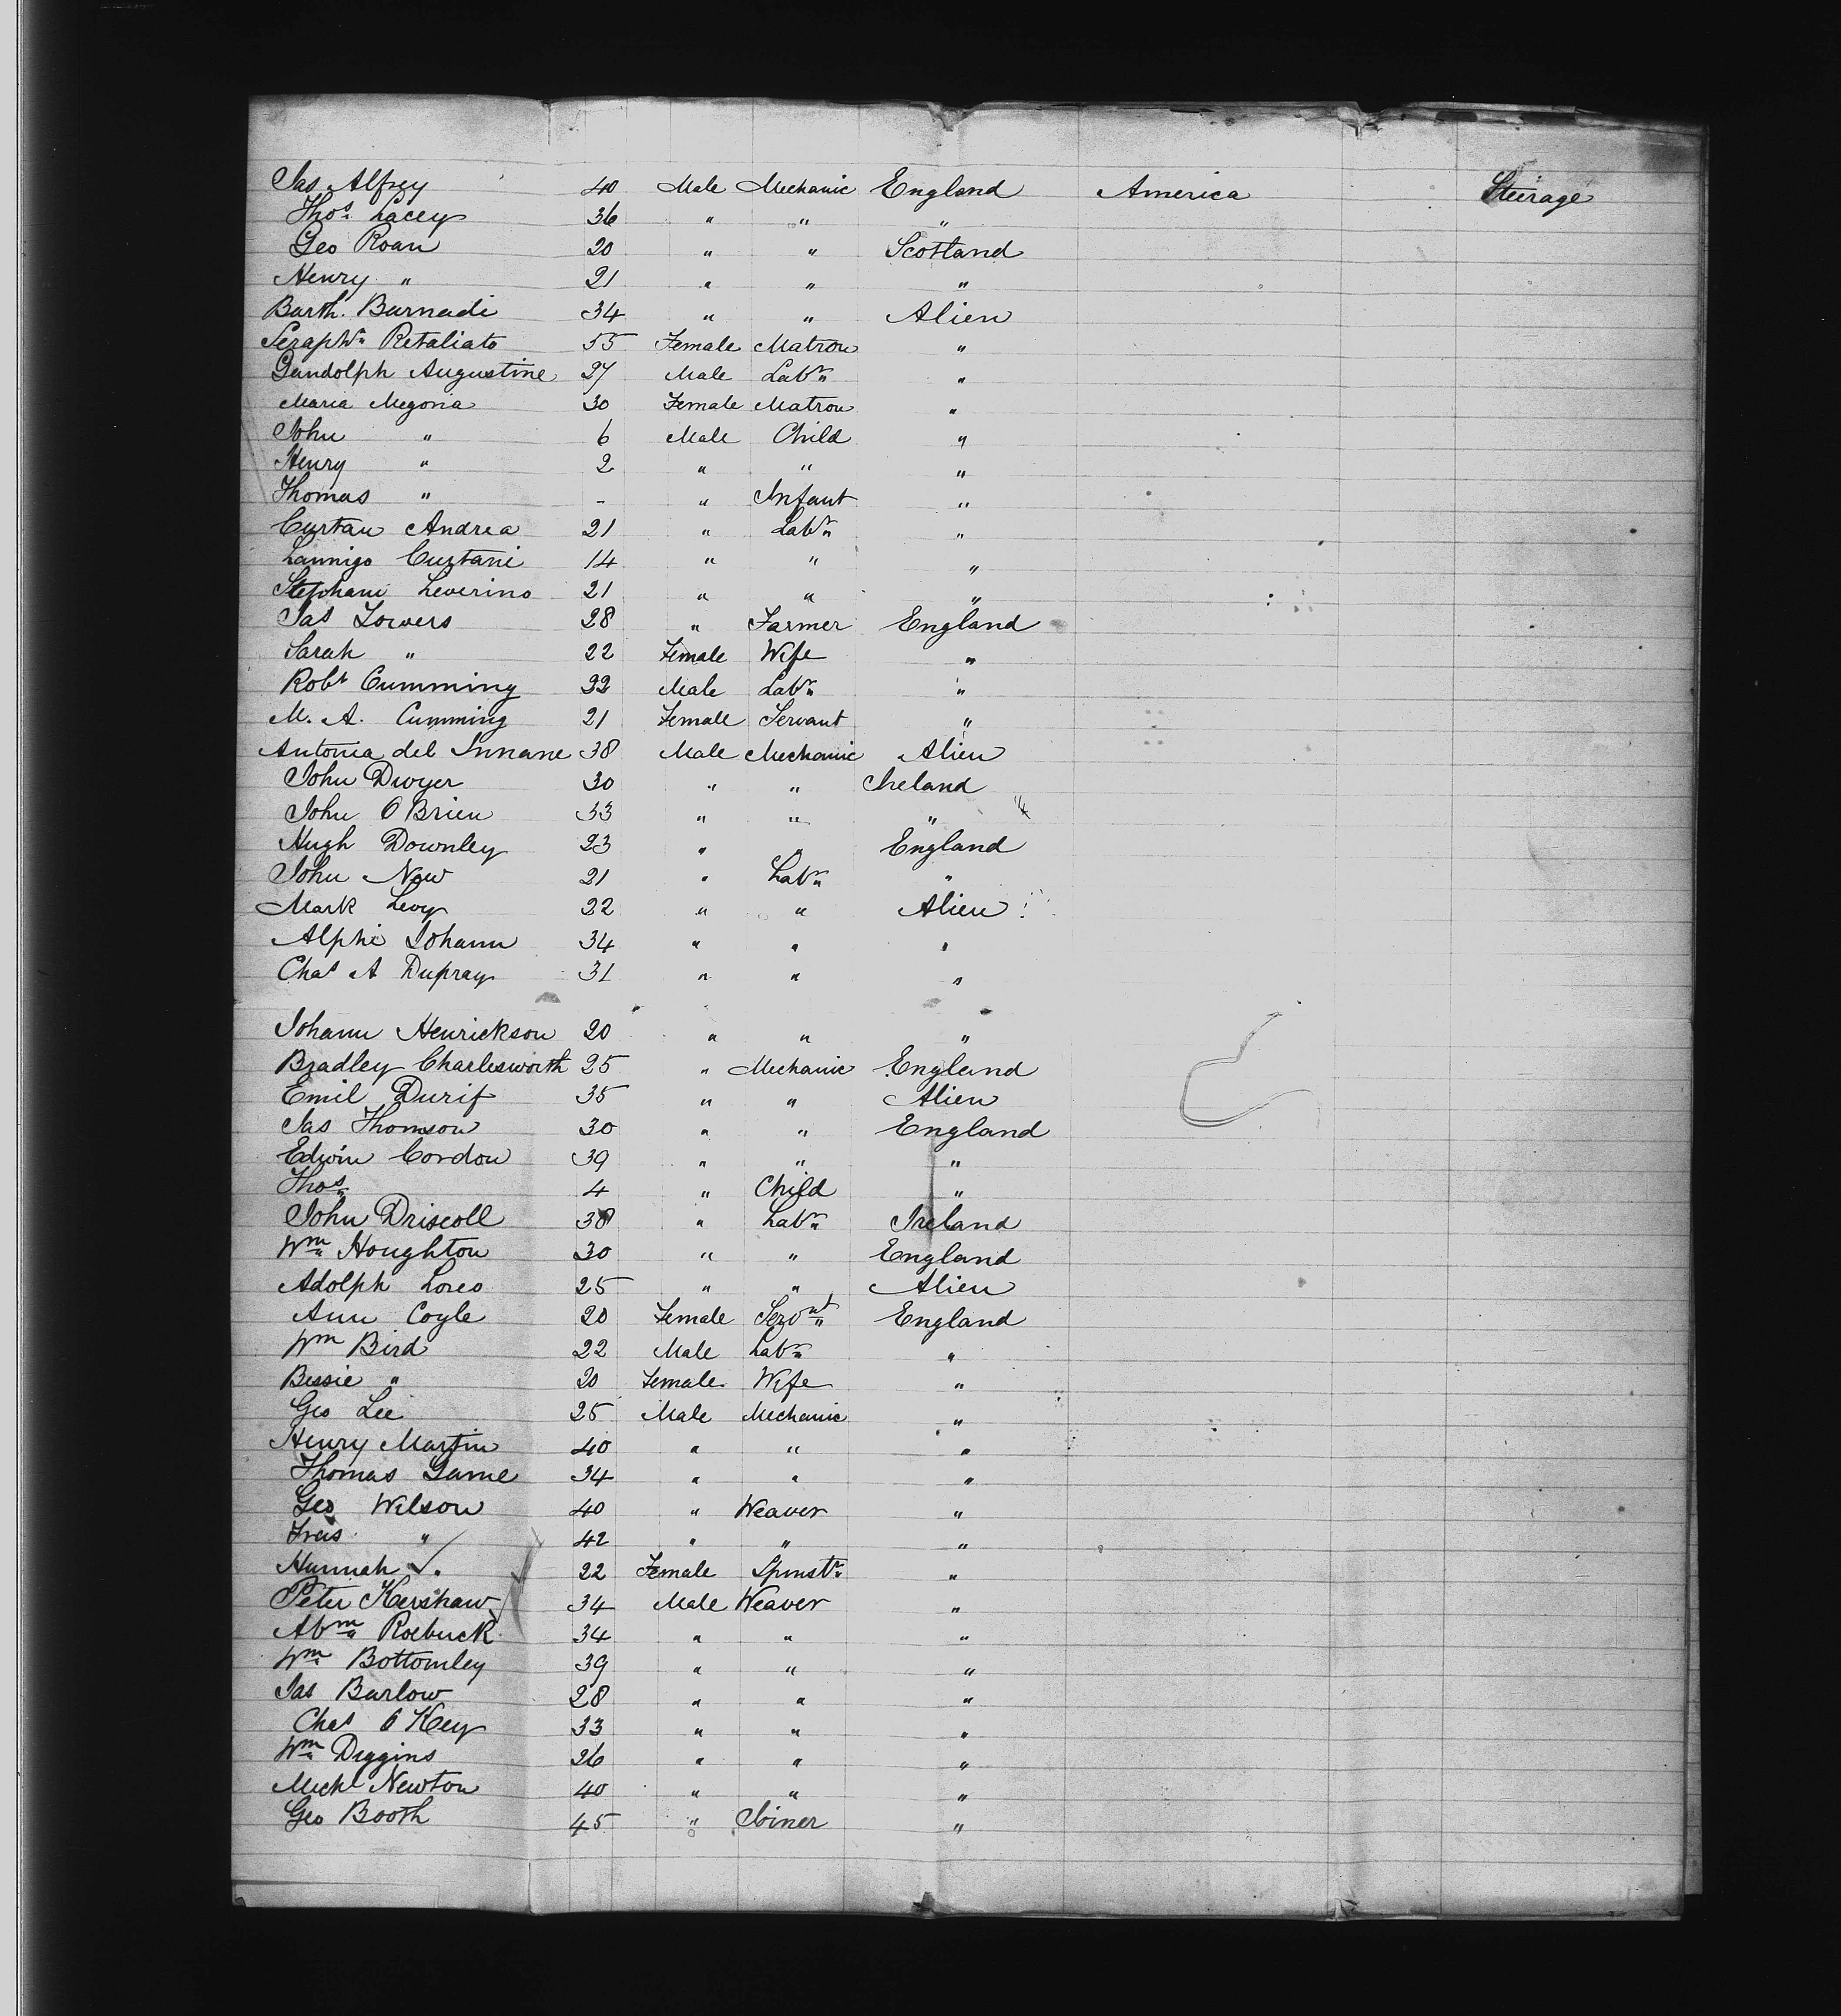 Jas Alfrey 40 Male Mechanic England America Steerage
Thos. Lacey 36 " " "
Geo Roan 20 " " Scotland
Henry " 21 " " "
Barth. Barnadi 34 " " Alien
Seraphna Retaliato 55 Female Matron "
Gandolph Augustine 27 Male Labr "
Maria Megoria 30 Female Matron "
John " 6 Male Child "
Henry " 2 " " "
Thomas " - " Infant "
Curtan Andrea 21 " Labr "
Lannigo Curtani 14 " " "
Stephani Leverino 21 " " "
Jas Lowers 28 " Farmer England
Sarah " 22 Female Wife "
Robt Cumming 22 Male Labr "
M. A. Cumming 21 Female Servant "
Antonia del Innane 38 Male Mechanic Alien
John Dwyer 30 " " Ireland
John O Brien 33 " " "
Hugh Downley 23 " " England
John New 21 " Labr "
Mark Levy 22 " " Alien
Alphi Johann 34 " " "
Chas A Dupray 31 " " "
Johann Henrickson 20 " " "
Bradley Charlesworth 25 " Mechanic England
Emil Durif 35 " " Alien
Jas Thomson 30 " " England
Edwin Cordon 39 " " "
Thos 4 " Child "
John Driscoll 38 " Labr Ireland
Wm Houghton 30 " " England
Adolph Loreo 25 " " Alien
Ann Coyle 20 Female Servnt England
Wm Bird 22 Male Labr "
Bessie " 20 Female Wife "
Geo Lee 25 Male Mechanic "
Henry Martin 40 " " "
Thomas Game 34 " " "
Geo Wilson 40 " Weaver "
Frcis " 42 " " "
Hannah 22 Female Spinstr "
Peter Kershaw 34 Male Weaver "
Abm Roebuck 34 " " "
Wm Bottomley 39 " " "
Jas Barlow 28 " " "
Chas O Key 33 " " "
Wm Diggins 26 " " "
Michl Newton 40 " " "
Geo Booth 45 " Joiner "